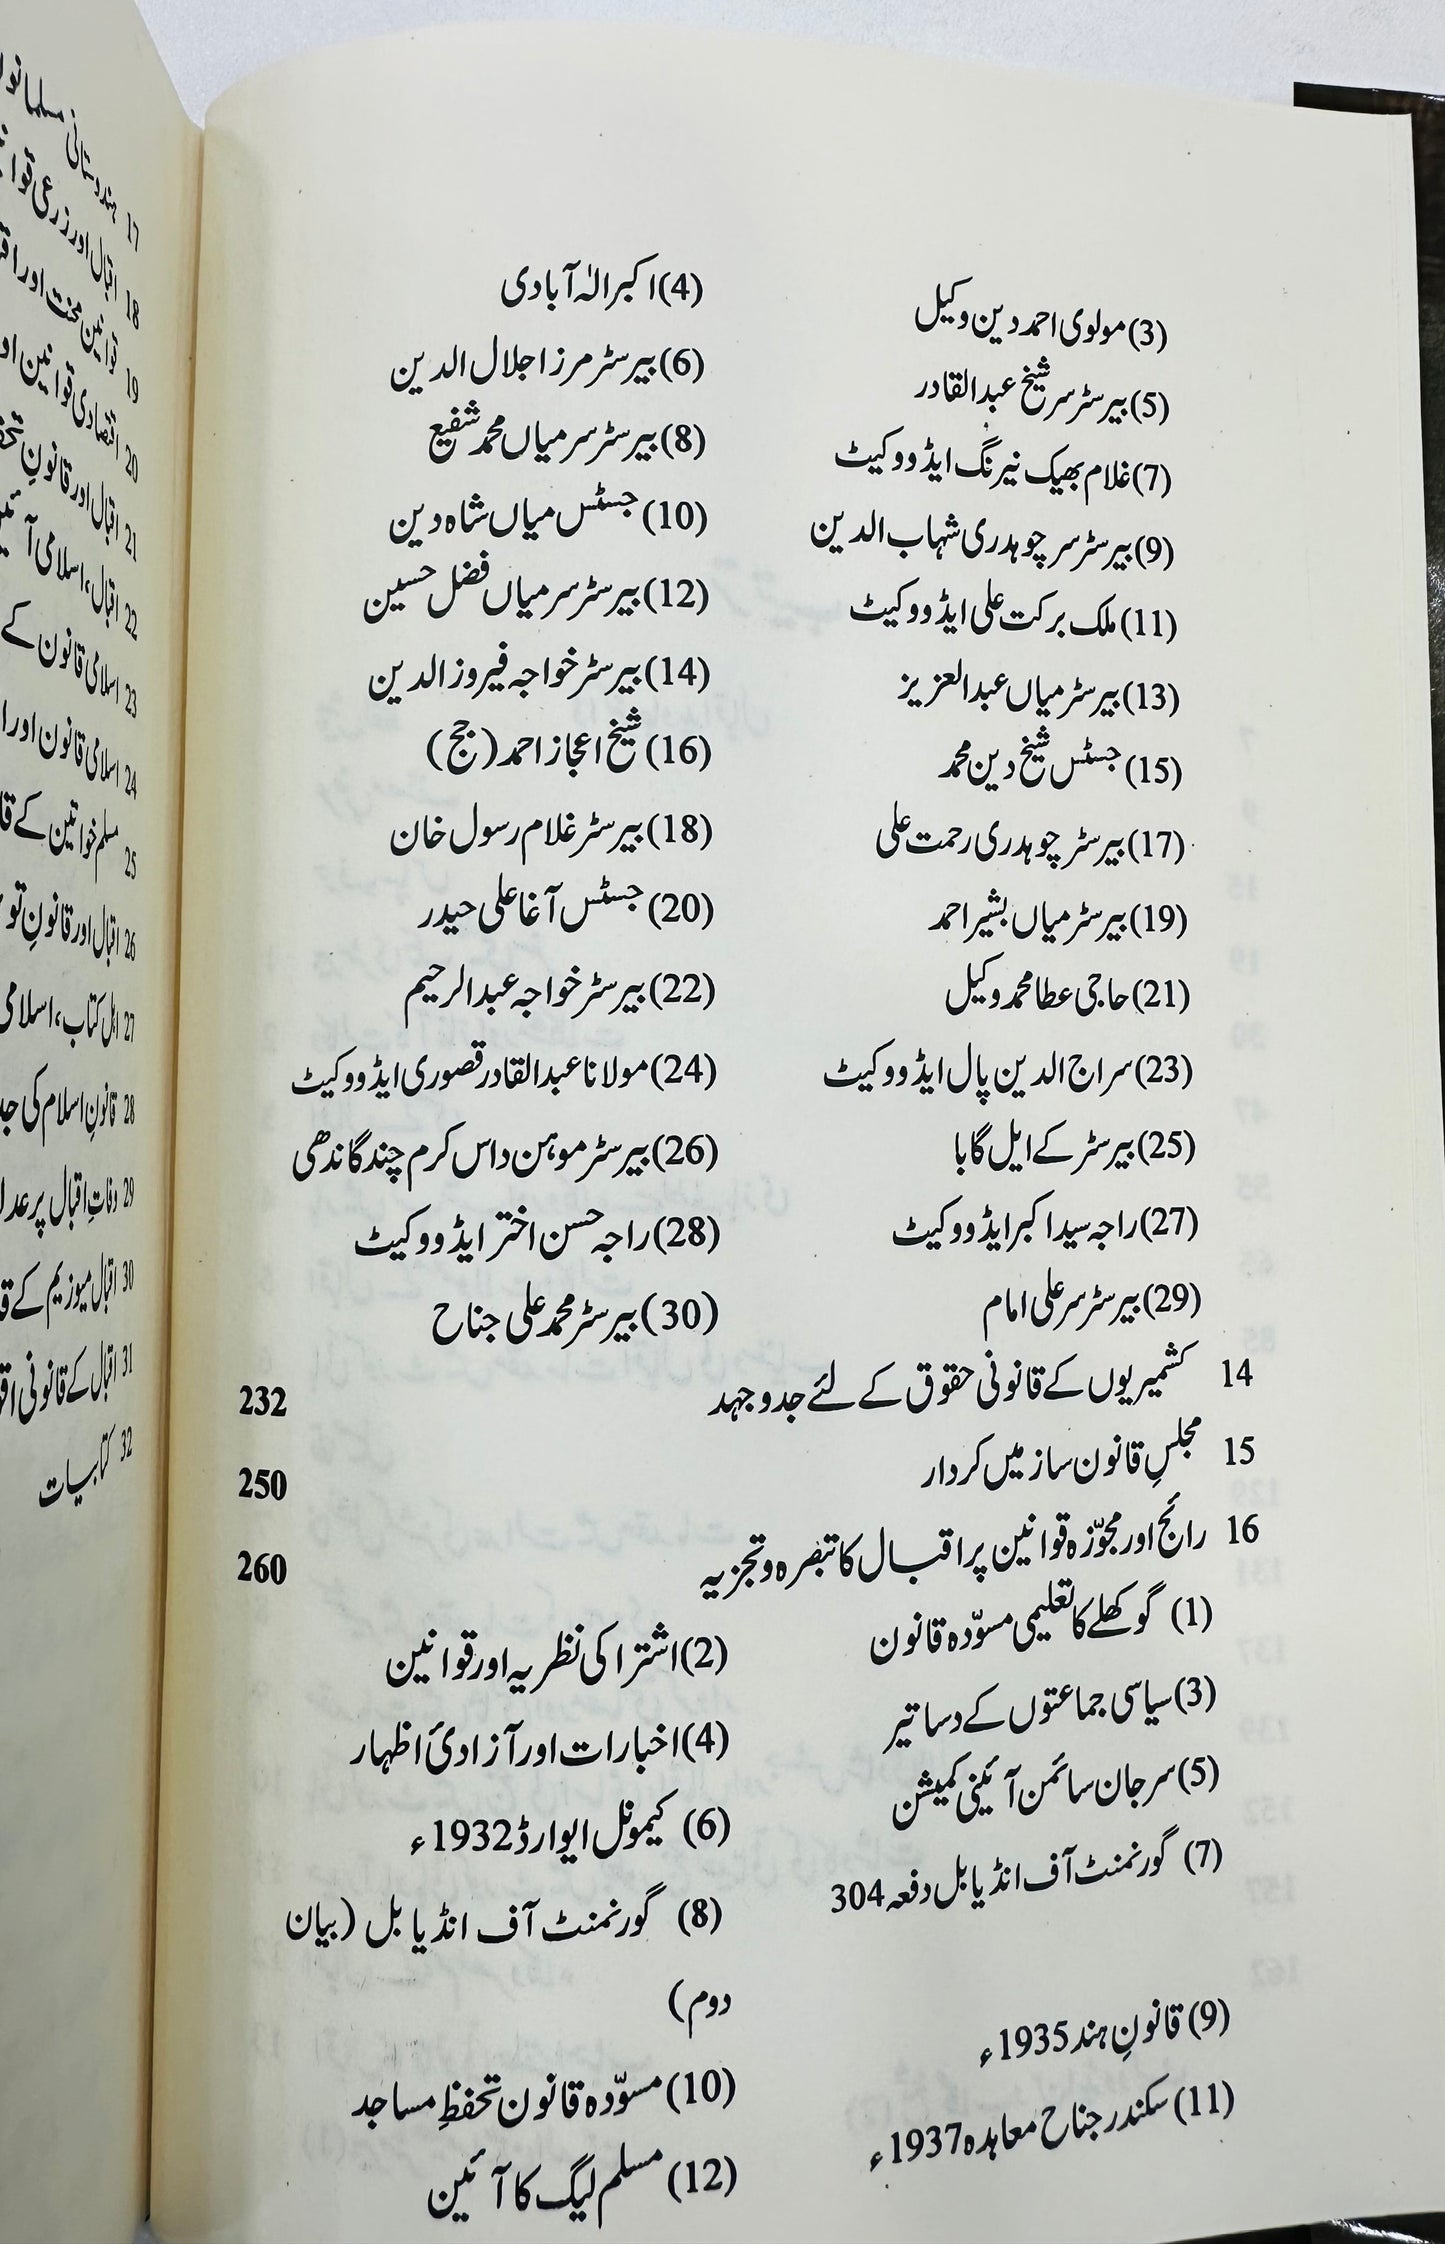 (3) مولوی احمد دین وکیل (4) اکبر الٰہ آبادی
(5) بیرسٹر سر شیخ عبدالقادر (6) بیرسٹر مرزا جلال الدین
(7) غلام بھیک نیرنگ ایڈووکیٹ (8) بیرسٹر سر میاں محمد شفیع
(9) بیرسٹر سر چوہدری شہاب الدین (10) جسٹس میاں شاہ دین
(11) ملک برکت علی ایڈووکیٹ (12) بیرسٹر سر میاں فضل حسین
(13) بیرسٹر میاں عبدالعزیز (14) بیرسٹر خواجہ فیروز الدین
(15) جسٹس شیخ دین محمد (16) شیخ اعجاز احمد (جج)
(17) بیرسٹر چوہدری رحمت علی (18) بیرسٹر غلام رسول خان
(19) بیرسٹر میاں بشیر احمد (20) جسٹس آغا علی حیدر
(21) حاجی عطا محمد وکیل (22) بیرسٹر خواجہ عبدالرحیم
(23) سراج الدین پال ایڈووکیٹ (24) مولانا عبدالقادر قصوری ایڈووکیٹ
(25) بیرسٹر کے ایل گابا (26) بیرسٹر موہن داس کرم چند گاندھی
(27) راجہ سید اکبر ایڈووکیٹ (28) راجہ حسن اختر ایڈووکیٹ
(29) بیرسٹر سر علی امام (30) بیرسٹر محمد علی جناح
14 کشمیریوں کے قانونی حقوق کے لئے جدوجہد 232
15 مجلسِ قانون ساز میں کردار 250
16 رائج اور مجوّزہ قوانین پر اقبال کا تبصرہ و تجزیہ 260
(1) گوکھلے کا تعلیمی مسوّدہ قانون (2) اشتراکی نظریہ اور قوانین
(3) سیاسی جماعتوں کے دساتیر (4) اخبارات اور آزادیٔ اظہار
(5) سر جان سائمن آئینی کمیشن (6) کیمونل ایوارڈ 1932ء
(7) گورنمنٹ آف انڈیا بل دفعہ 304 (8) گورنمنٹ آف انڈیا بل (بیان
دوم)
(9) قانونِ ہند 1935ء (10) مسوّدہ قانون تحفظِ مساجد
(11) سکندر جناح معاہدہ 1937ء (12) مسلم لیگ کا آئین
17 ہندوستانی
18 اقبال اور زرعی
19 قوانین محنت اور
20 اقتصادی قوانین
21 اقبال اور قانونِ
22 اقبال، اسلامی
23 اسلامی قانون کے
24 اسلامی قانون اور
25 مسلم خواتین کے
26 اقبال اور قانونِ
27 اہل کتاب، اسلامی
28 قانونِ اسلام کی
29 وفاتِ اقبال پر
30 اقبال میوزیم کے
31 اقبال کے قانونی
32 کتابیات